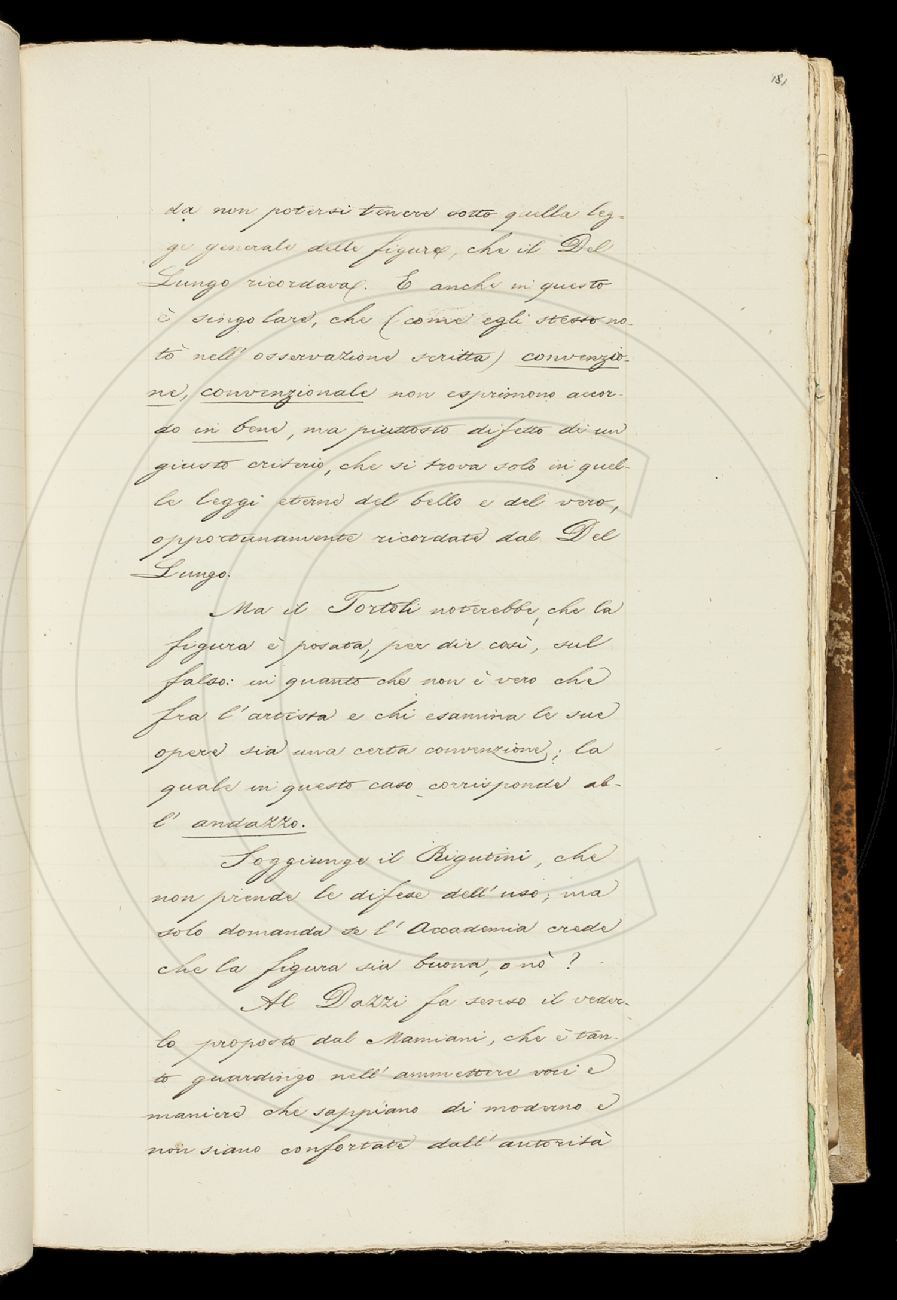 181
da non potersi tenere sotto quella leg-
ge generale delle figure, che il Del
Lungo ricordava. E anche in questo
è singolare, che (come egli stesso no-
tò nell' osservazione scritta) convenzio-
ne, convenzionale non esprimono accor-
do in bene, ma piuttosto difetto di un
giusto criterio, che si trova solo in quel-
le leggi eterne del bello e del vero,
opportunamente ricordate dal Del
Lungo.
Ma il Tortoli noterebbe, che la
figura è posata, per dir così, sul
falso: in quanto che non è vero che
fra l'artista e chi esamina le sue
opere sia una certa convenzione; la
quale in questo caso corrisponde al-
l' andazzo.
Soggiunge il Rigutini, che
non prende le difese dell' uso; ma
solo domanda se l' Accademia crede
che la figura sia buona, o nò?
Al Dazzi fa senso il veder-
lo proposto dal Mamiani, che è tan-
to guardingo nell' ammettere voci e
maniere che sappiano di moderno e
non siano confortate dall' autorità